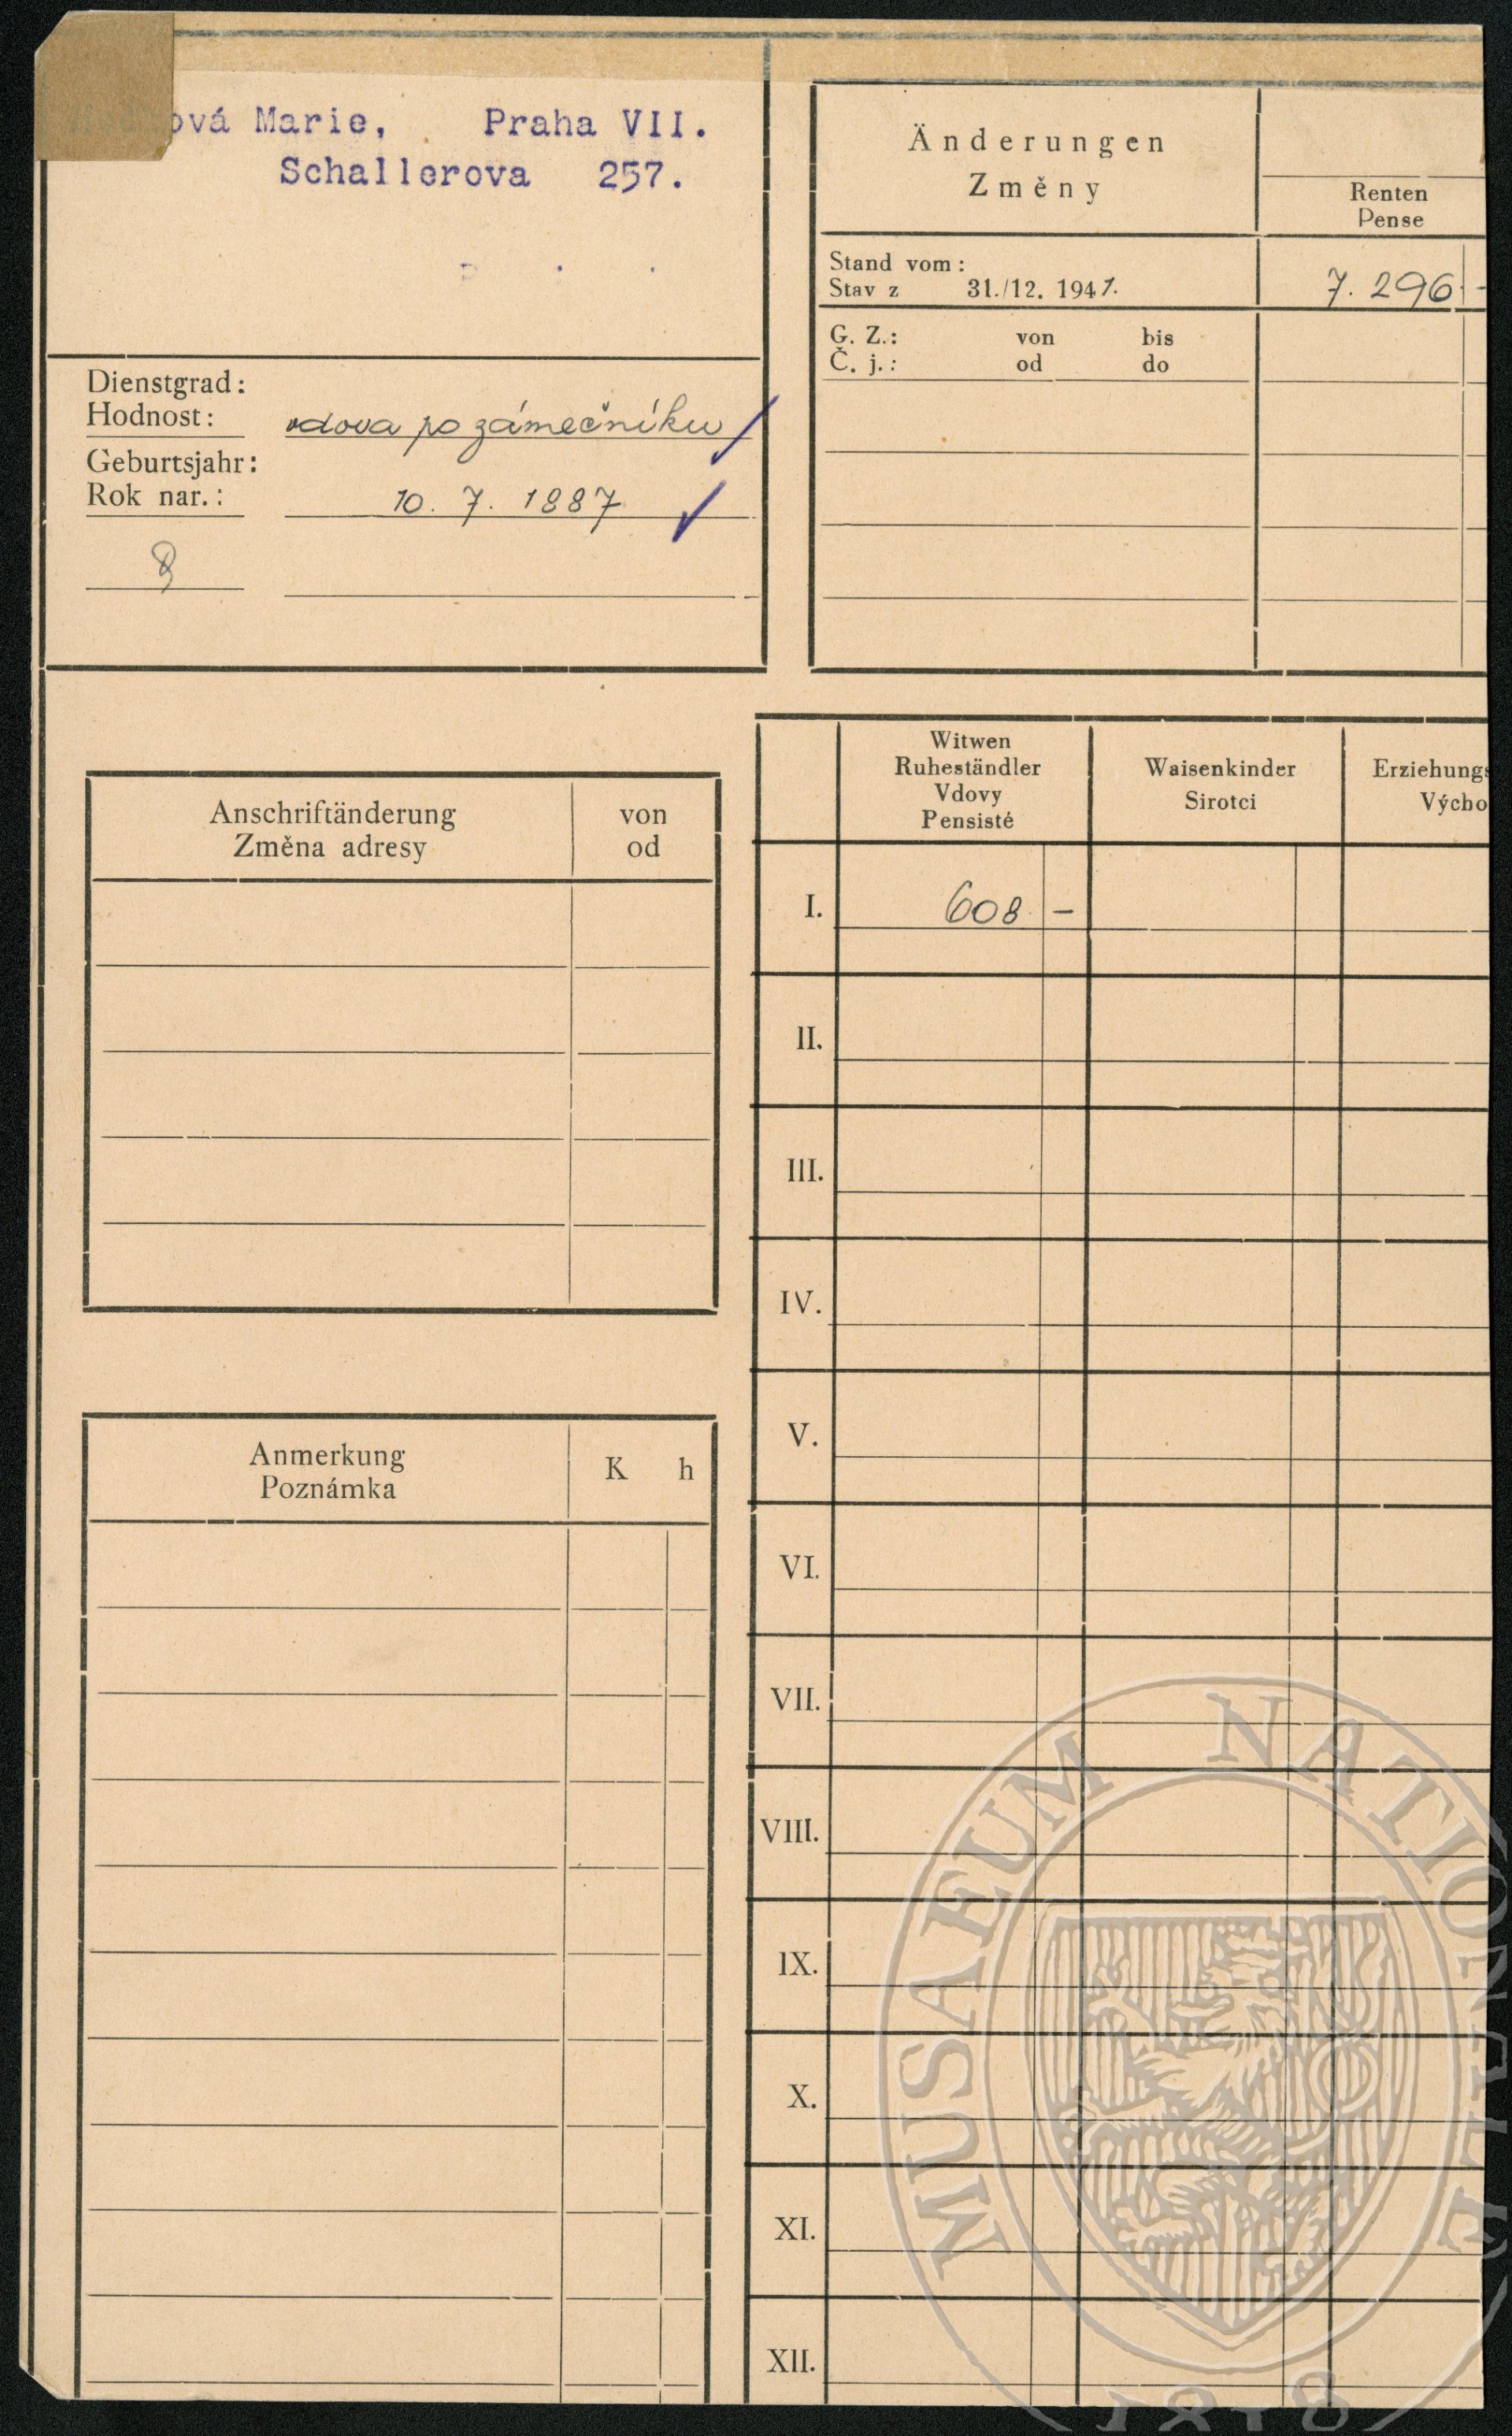 ová Marie, Praha VII.
Schallerova 257.
Dienstgrad:
Hodnost: vdova po zámečníku
Geburtsjahr:
Rok nar.: 10. 7. 1887
Änderungen
Změny
Renten
Pense
Stand vom:
Stav z 31./12. 1941.
7.296 -
G. Z.: von bis
Č. j.: od do
Anschriftänderung von
Změna adresy od
Anmerkung
Poznámka
K h
Witwen
Ruheständler
Vdovy
Pensisté
Waisenkinder
Sirotci
Erziehungs
Výcho
I. 608 -
II.
III.
IV.
V.
VI.
VII.
VIII.
IX.
X.
XI.
XII.
MUSAEUM NATIONALE
1818